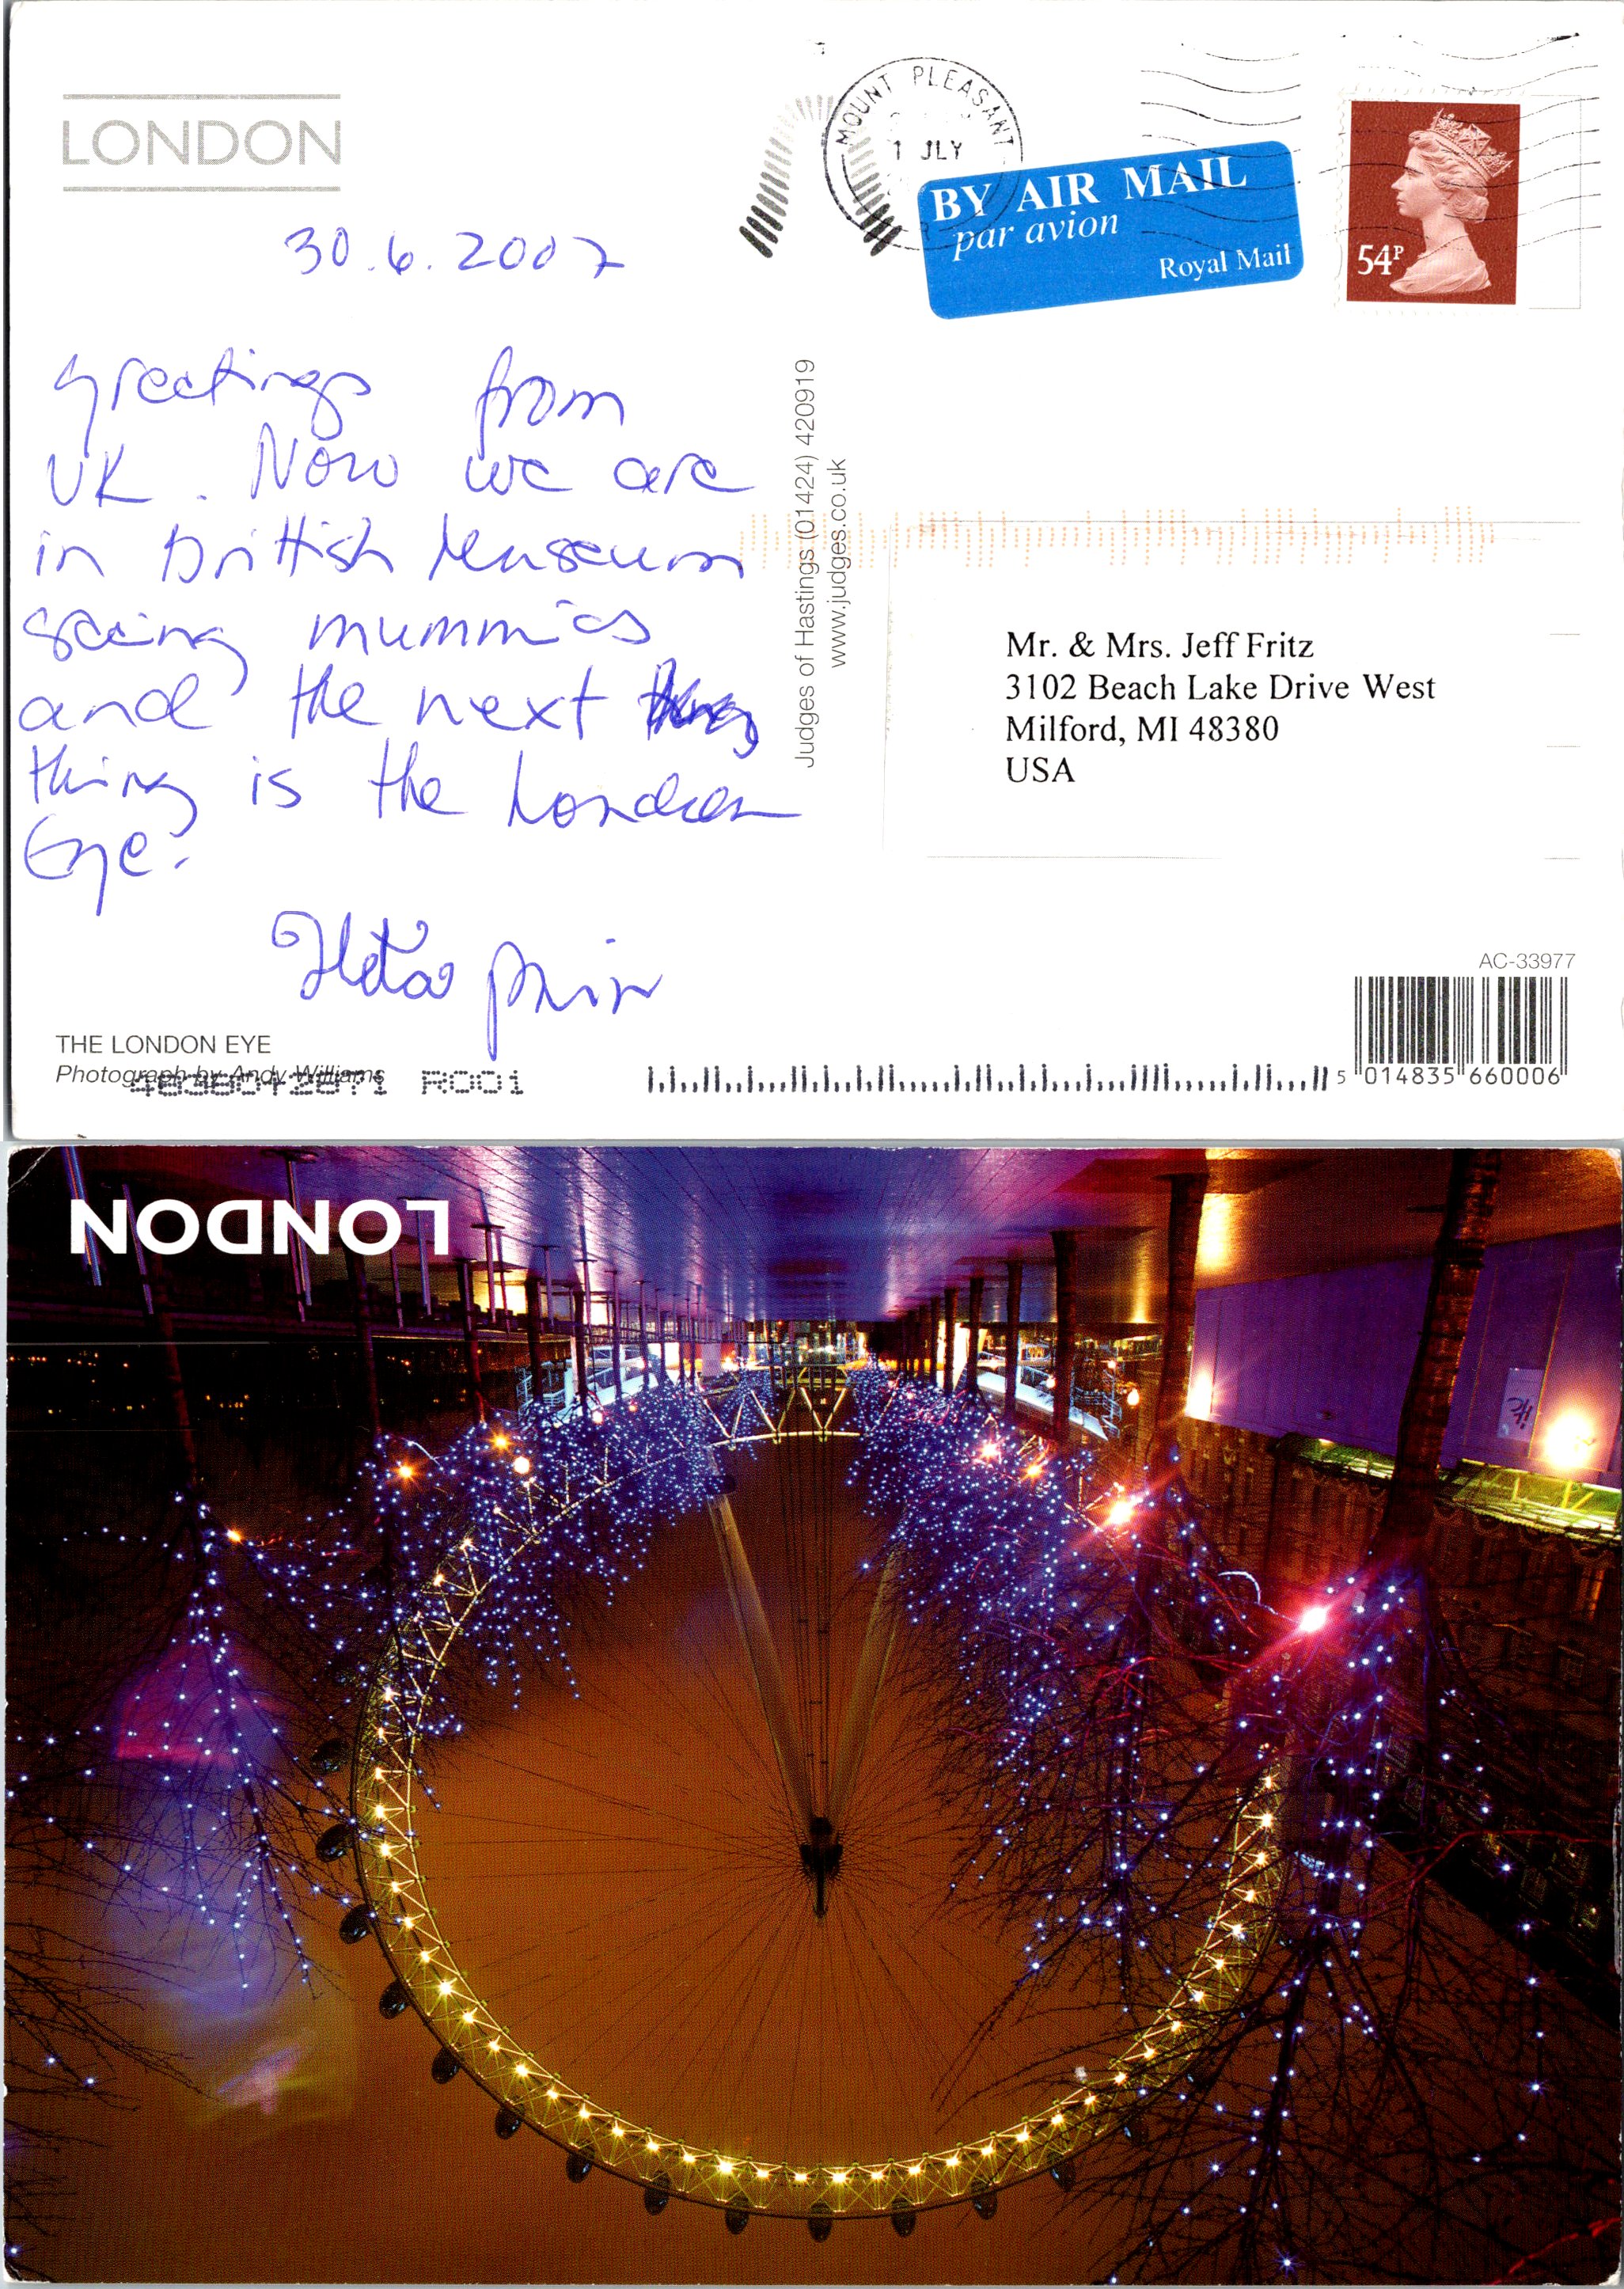 LONDON
MOUNT PLEASANT
1 JLY
BY AIR MAIL
par avion
Royal Mail
54P
30.6.2007
Greetings from
UK. Now we are
in British Museum
seeing mummies
and the next
thing is the London
Eye.
Judges of Hastings (01424) 420919
www.judges.co.uk
Mr. & Mrs. Jeff Fritz
3102 Beach Lake Drive West
Milford, MI 48380
USA
AC-33977
THE LONDON EYE
Photograph by Andy Williams
R001
5 014835 660006
LONDON